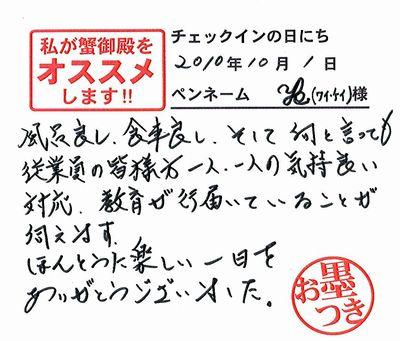 私が蟹御殿を
オススメ
します!!
チェックインの日にち
2010年10月1日
ペンネーム (ワイ・ケイ)様
風呂良し、食事良し、そして何と言っても
従業員の皆様方一人、一人の気持良い
対応、教育が行届いていることが
伺えます。
ほんとうに楽しい一日を
ありがとうございました。
お墨つき